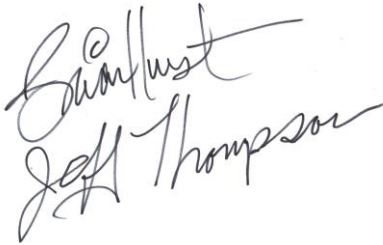 Brian Hurst
Jeff Thompson